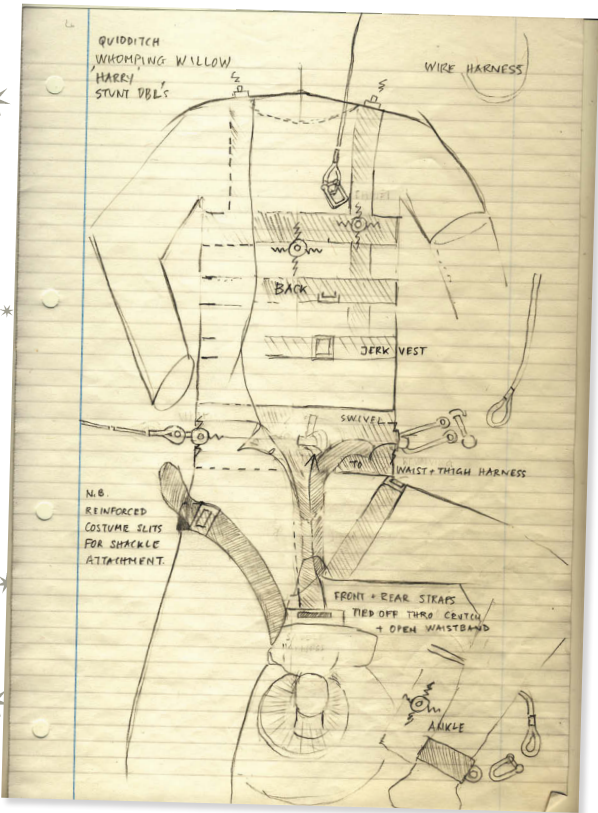 QUIDDITCH
WHOMPING WILLOW
'HARRY'
STUNT DBL'S
WIRE HARNESS
BACK
JERK VEST
SWIVEL
TO
WAIST + THIGH HARNESS
N.B.
REINFORCED
COSTUME SLITS
FOR SHACKLE
ATTACHMENT.
FRONT + REAR STRAPS
TIED OFF THRO CRUTCH
+ OPEN WAISTBAND
ANKLE